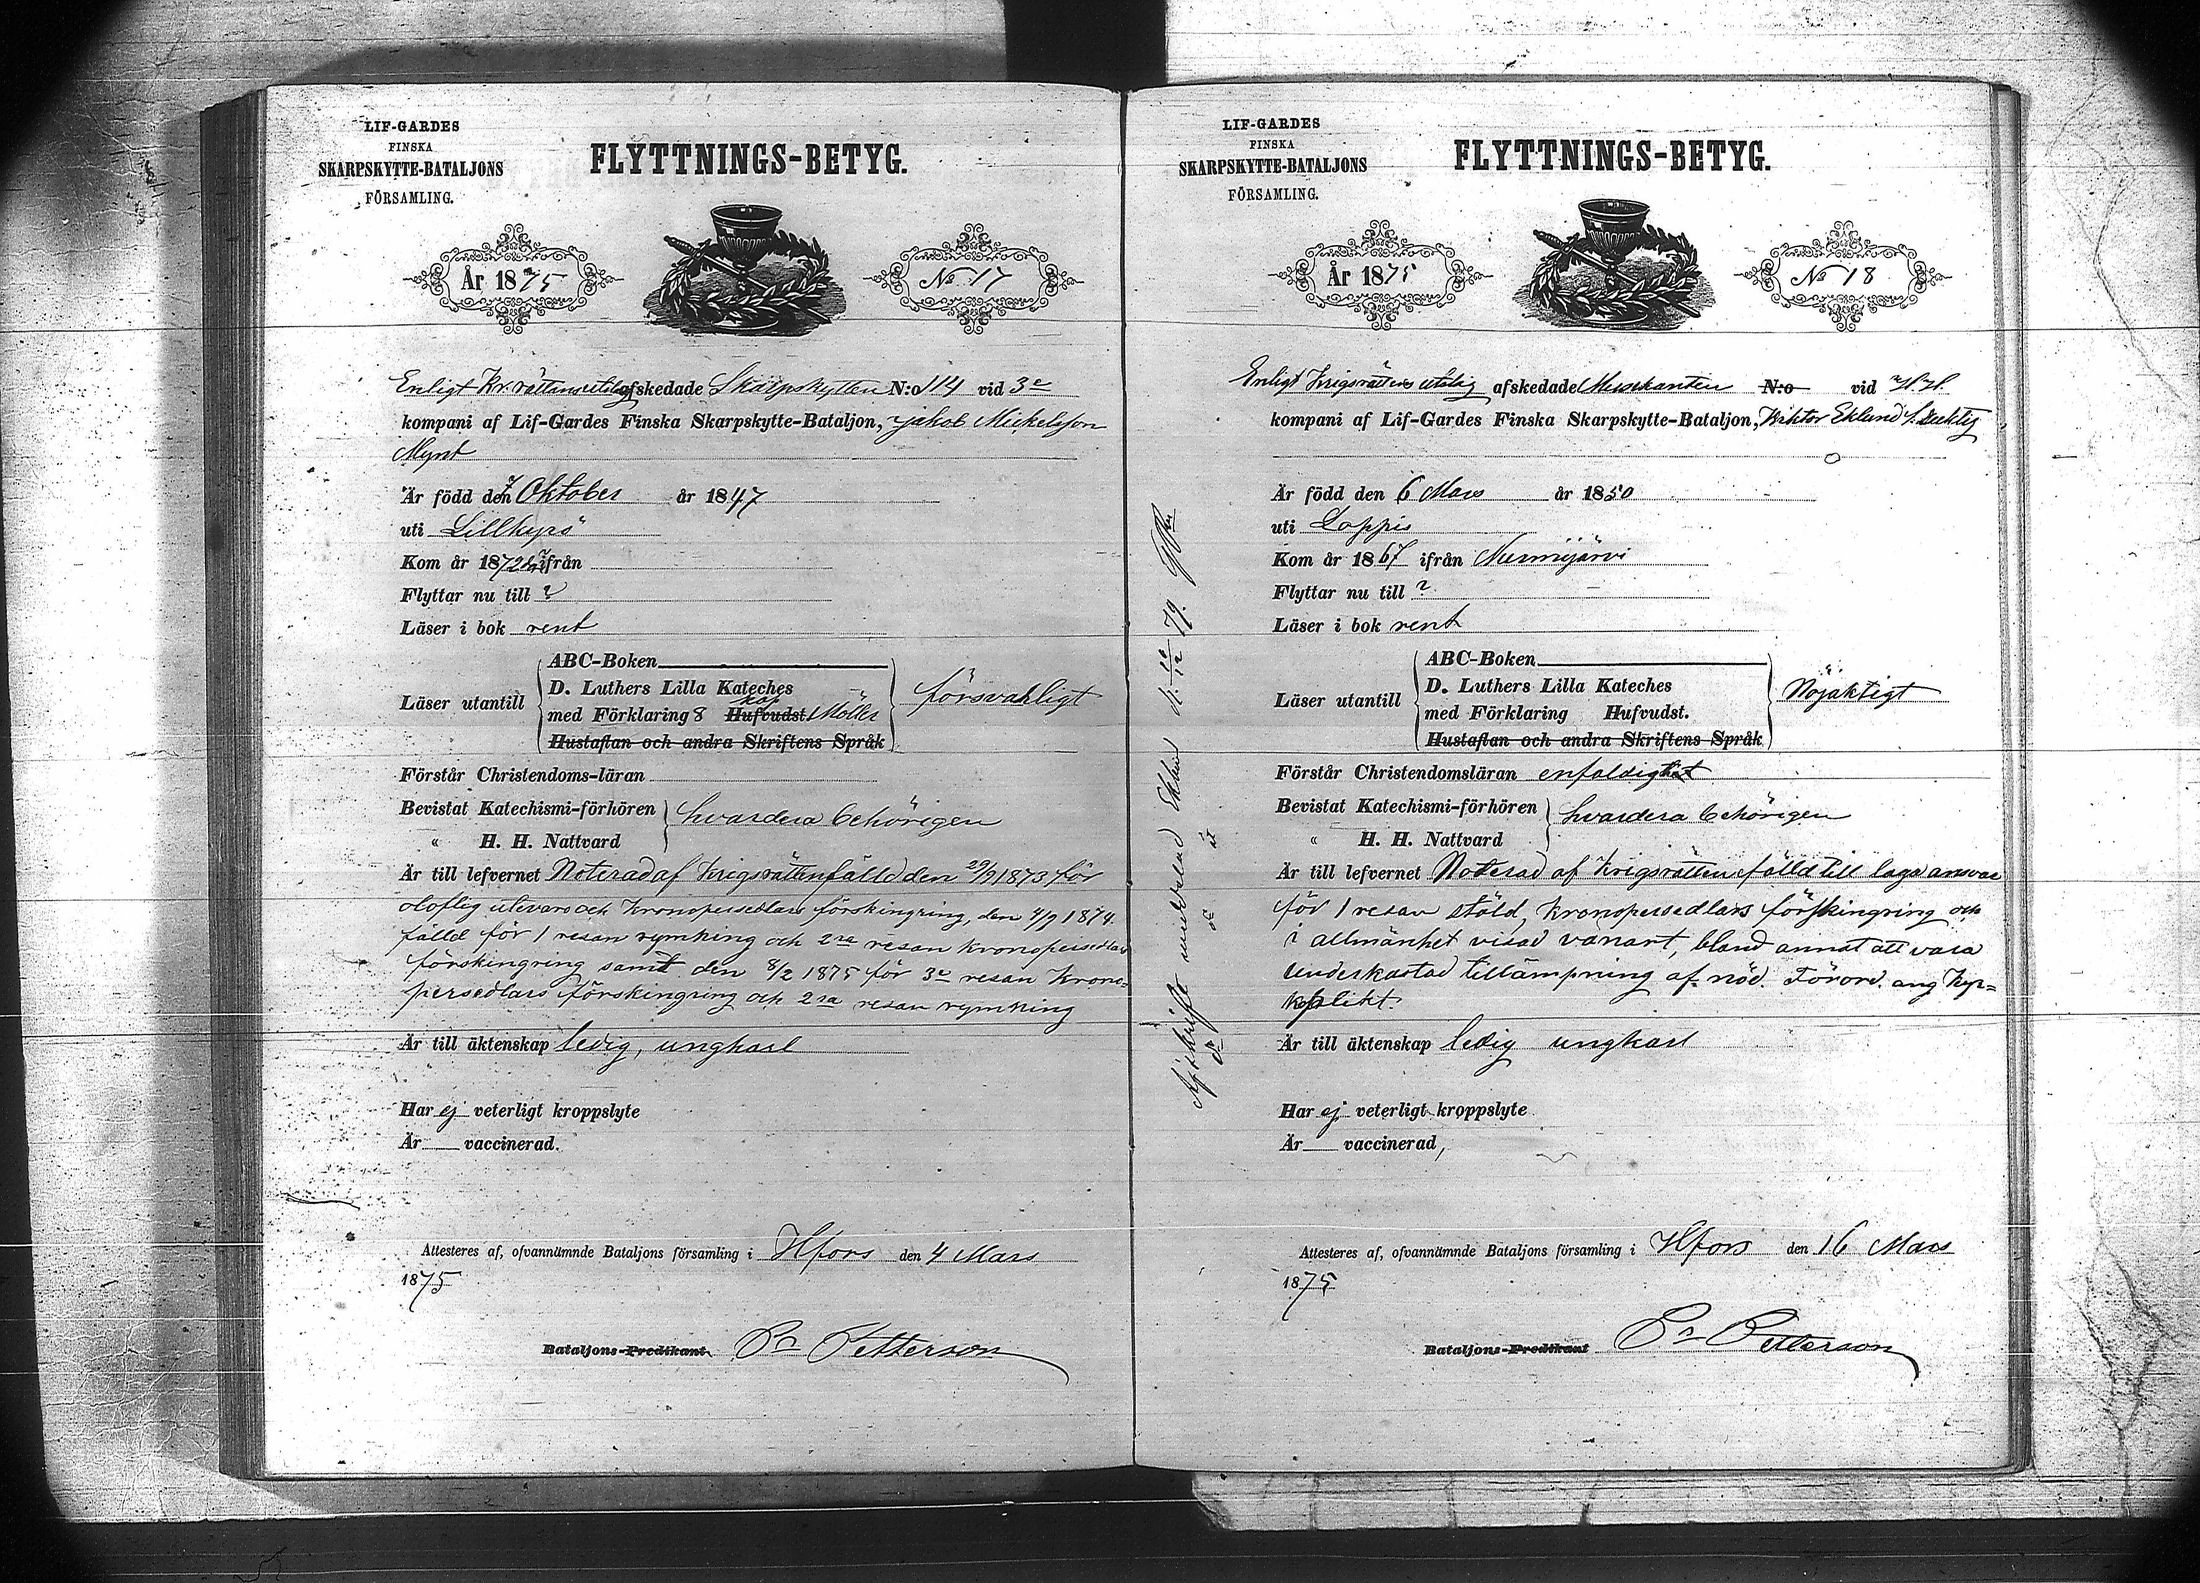 LIF-GARDES
FINSKA
SKARPSKYTTE-BATALJONS
FÖRSAMLING.
FLYTTNINGS-BETYG.
År 1875
No 17
Enligt Kr.rättens utslag afskedade Skarpskytten N:o 114 vid 3e
kompani af Lif-Gardes Finska Skarpskytte-Bataljon, Jakob Mickelsson
Mynt
Är född den 7 Oktober år 1847
uti Lillkyrö
Kom år 1872 ifrån
Flyttar nu till ?
Läser i bok rent
ABC-Boken
Läser utantill
D. Luthers Lilla Kateches
med Förklaring 8 kap Hufvudst. Möller
Hustaflan och andra Skriftens Språk
försvarligt
Förstår Christendoms-läran
Bevistat Katechismi-förhören
" H. H. Nattvard
hvardera behörigen
Är till lefvernet Noterad af Krigsrätten fälld den 29/9 1873 för
oloflig utevaro och Kronopersedlars förskingring, den 4/9 1874
fälld för 1 resan rymning och 2ra resan Kronopersedlars
förskingring samt den 8/2 1875 för 3e resan Krono=
persedlars förskingring och 2ra resan rymning
Är till äktenskap ledig, ungkarl
Har ej veterligt kroppslyte
Är vaccinerad.
Attesteres af, ofvannämnde Bataljons församling i Hfors den 4 Mars
1875
Bataljons-Predikant Petterson
LIF-GARDES
FINSKA
SKARPSKYTTE-BATALJONS
FÖRSAMLING.
FLYTTNINGS-BETYG.
År 1875
No 18
Enligt Krigsrättens utslag afskedade Musikanten N:o vid
kompani af Lif-Gardes Finska Skarpskytte-Bataljon, Viktor Eklund
Är född den 6 Mars år 1850
uti Loppis
Kom år 1867 ifrån Nurmijärvi
Flyttar nu till ?
Läser i bok rent
ABC-Boken
Läser utantill
D. Luthers Lilla Kateches
med Förklaring Hufvudst.
Hustaflan och andra Skriftens Språk
Nöjaktigt
Förstår Christendomsläran enfaldigt
Bevistat Katechismi-förhören
" H. H. Nattvard
hvardera behörigen
Är till lefvernet Noterad af Krigsrätten fälld till laga ansvar
för 1 resan stöld, Kronopersedlars förskingring och
i allmänhet visad vanart, bland annat att vara
underkastad tillämpning af nöd. Förord. ang Kyr=
koplikt.
Är till äktenskap ledig ungkarl
Har ej veterligt kroppslyte
Är vaccinerad,
Attesteres af, ofvannämnde Bataljons församling i Hfors den 16 Mars
1875
Bataljons-Predikant Petterson
Afskrift meddelad Eklund d. 79.